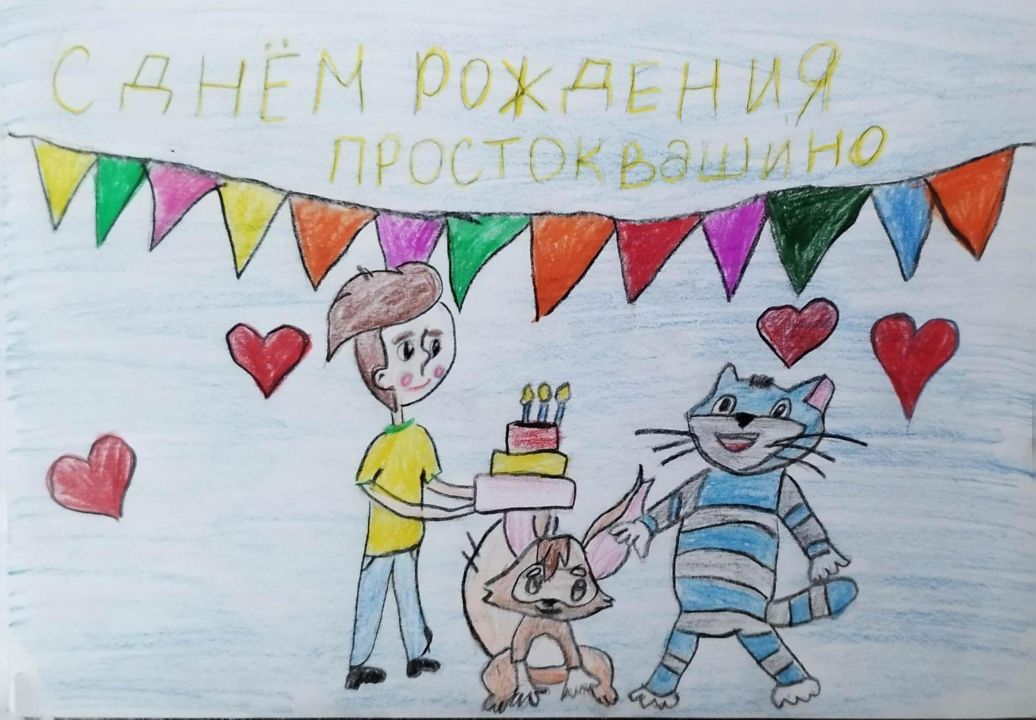 С ДНЁМ РОЖДЕНИЯ
ПРОСТОКВАШИНО